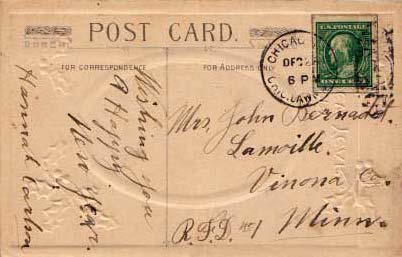 POST CARD.
FOR CORRESPONDENCE
FOR ADDRESS ONLY
Wishing you
A Happy
New Year.
Hannah Carlson
CHICAGO
DEC 2
6 P
U.S. POSTAGE
Mrs. John Bernadot.
Lamoille.
Vinona Co.
R.F.D. no 1 Minn.